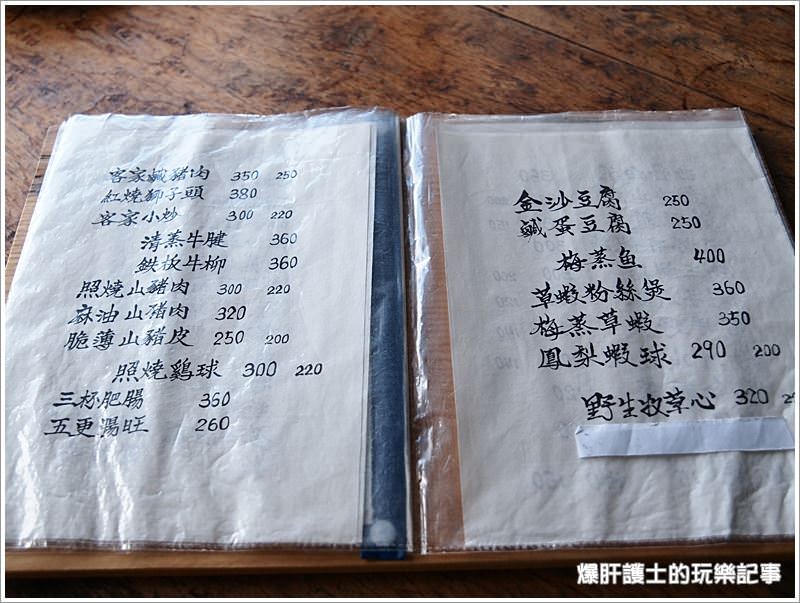 客家鹹豬肉 350 250
紅燒獅子頭 380
客家小炒 300 220
清蒸牛腱 360
鉄板牛柳 360
照燒山豬肉 300 220
麻油山豬肉 320
脆薄山豬皮 250 200
照燒鷄球 300 220
三杯肥腸 360
五更腸旺 260
金沙豆腐 250
鹹蛋豆腐 250
梅蒸鱼 400
草蝦粉絲煲 360
梅蒸草蝦 350
鳳梨蝦球 290 200
野生牧草心 320
爆肝護士的玩樂記事